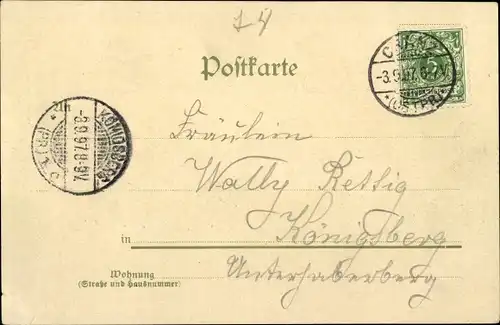 Postkarte
CRANZ
-3.9.97.6-7V.
*(OSTPR)*
KÖNIGSBERG
-3.9.97.8-9V.
(PR.) 1.
Fräulein
Wally Rettig
in Königsberg
Unterhaberberg
Wohnung
(Straße und Hausnummer)